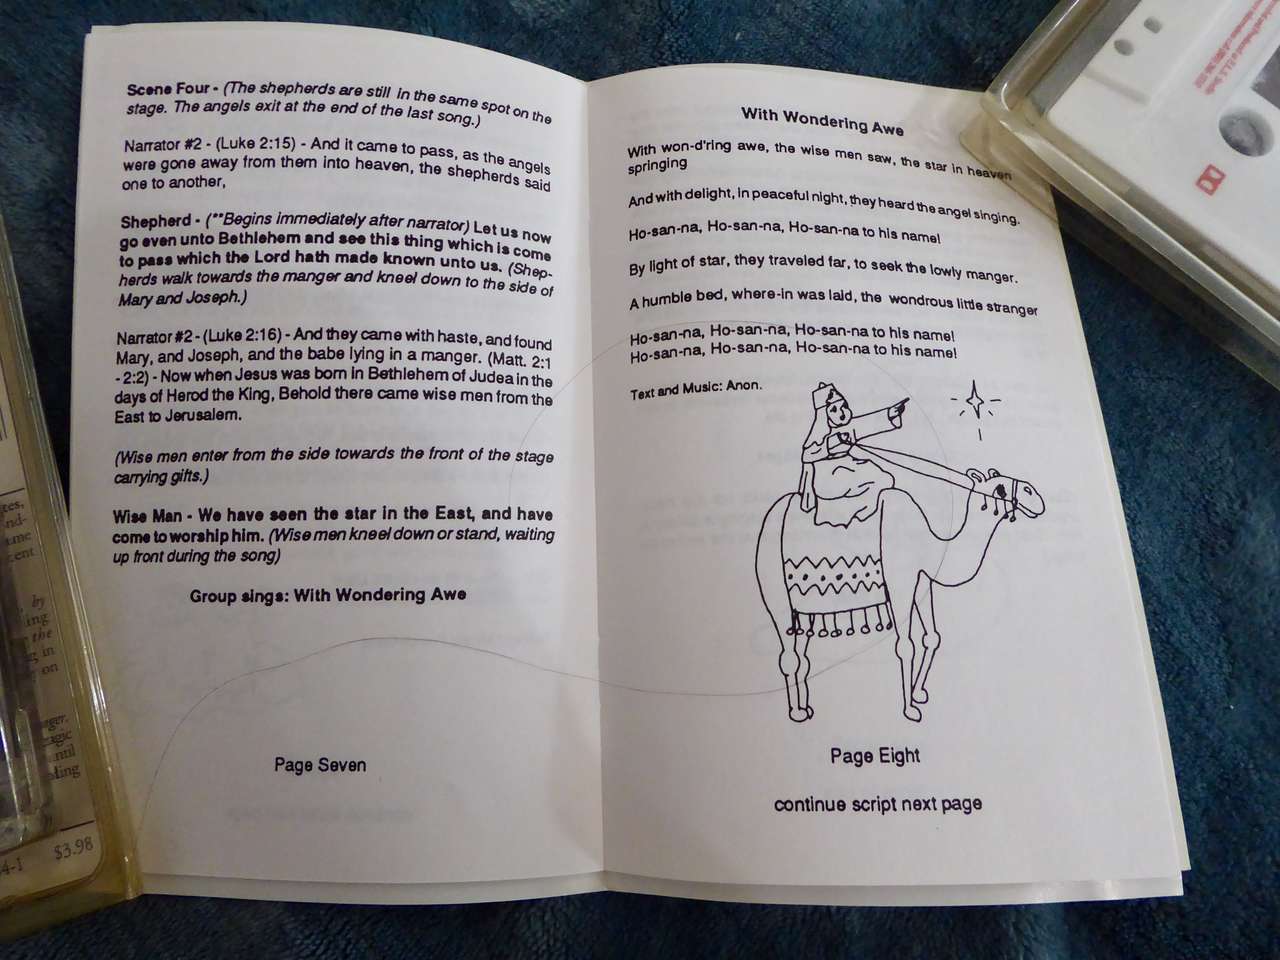 Scene Four - (The shepherds are still in the same spot on the
stage. The angels exit at the end of the last song.)
Narrator #2 - (Luke 2:15) - And it came to pass, as the angels
were gone away from them into heaven, the shepherds said
one to another,
Shepherd - (**Begins immediately after narrator) Let us now
go even unto Bethlehem and see this thing which is come
to pass which the Lord hath made known unto us. (Shep-
herds walk towards the manger and kneel down to the side of
Mary and Joseph.)
Narrator #2 - (Luke 2:16) - And they came with haste, and found
Mary, and Joseph, and the babe lying in a manger. (Matt. 2:1
- 2:2) - Now when Jesus was born in Bethlehem of Judea in the
days of Herod the King, Behold there came wise men from the
East to Jerusalem.
(Wise men enter from the side towards the front of the stage
carrying gifts.)
Wise Man - We have seen the star in the East, and have
come to worship him. (Wise men kneel down or stand, waiting
up front during the song)
Group sings: With Wondering Awe
Page Seven
With Wondering Awe
With won-d'ring awe, the wise men saw, the star in heaven
springing
And with delight, in peaceful night, they heard the angel singing.
Ho-san-na, Ho-san-na, Ho-san-na to his name!
By light of star, they traveled far, to seek the lowly manger.
A humble bed, where-in was laid, the wondrous little stranger
Ho-san-na, Ho-san-na, Ho-san-na to his name!
Ho-san-na, Ho-san-na, Ho-san-na to his name!
Text and Music: Anon.
Page Eight
continue script next page
by
the
in
on
$3.98
4-1